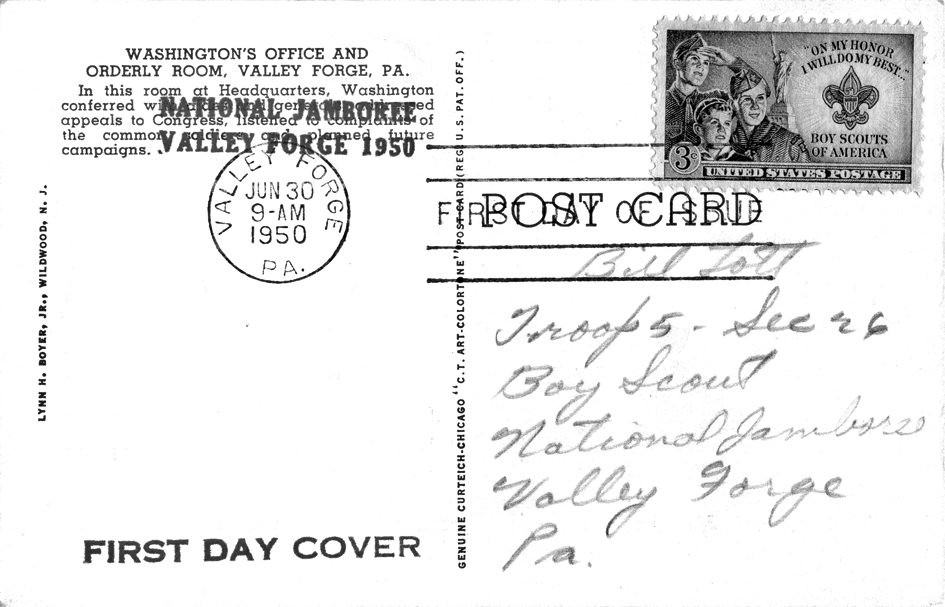 WASHINGTON'S OFFICE AND
ORDERLY ROOM, VALLEY FORGE, PA.
In this room at Headquarters, Washington
conferred with aides and generals, addressed
appeals to Congress, listened to complaints of
the common soldiers and planned future
campaigns.
NATIONAL JAMBOREE
VALLEY FORGE 1950
VALLEY FORGE
JUN 30
9-AM
1950
PA.
FIRST DAY OF ISSUE
"ON MY HONOR
I WILL DO MY BEST..."
BOY SCOUTS
OF AMERICA
3¢
UNITED STATES POSTAGE
POST CARD
LYNN H. BOYER, JR., WILDWOOD, N. J.
GENUINE CURTEICH-CHICAGO "C.T. ART-COLORTONE" POST CARD (REG. U.S. PAT. OFF.)
Bill
Troop 5 - Sec 26
Boy Scout
National Jamboree
Valley Forge
Pa.
FIRST DAY COVER